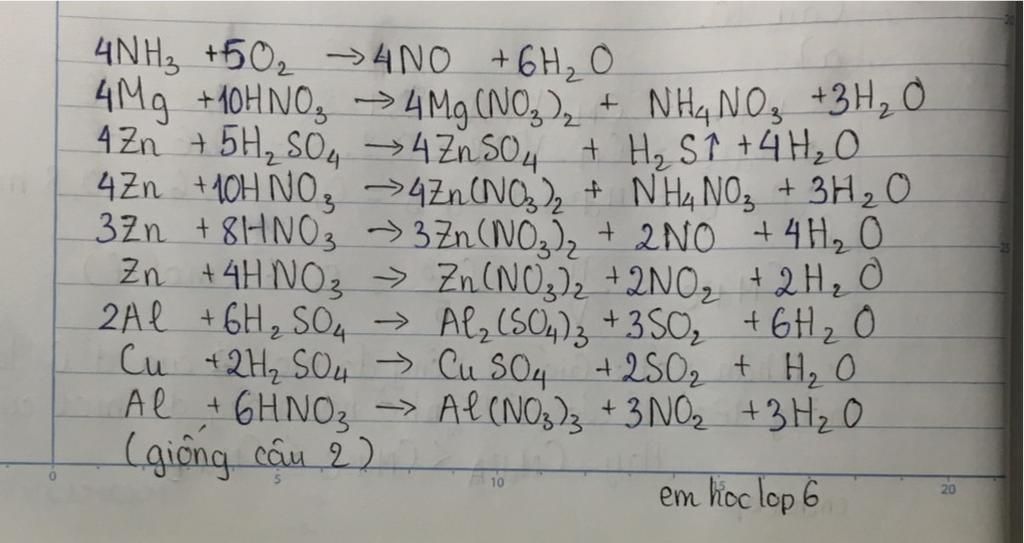 4NH₃ +5O₂ → 4NO +6H₂O
4Mg +10HNO₃ → 4Mg(NO₃)₂ + NH₄NO₃ +3H₂O
4Zn + 5H₂SO₄ → 4ZnSO₄ + H₂S↑ +4H₂O
4Zn +10HNO₃ → 4Zn(NO₃)₂ + NH₄NO₃ + 3H₂O
3Zn + 8HNO₃ → 3Zn(NO₃)₂ + 2NO + 4H₂O
Zn +4HNO₃ → Zn(NO₃)₂ +2NO₂ + 2H₂O
2Al +6H₂SO₄ → Al₂(SO₄)₃ +3SO₂ +6H₂O
Cu +2H₂SO₄ → CuSO₄ +2SO₂ + H₂O
Al + 6HNO₃ → Al(NO₃)₃ +3NO₂ +3H₂O
(giống câu 2)
0 5 10 15 20
em hoc lop 6